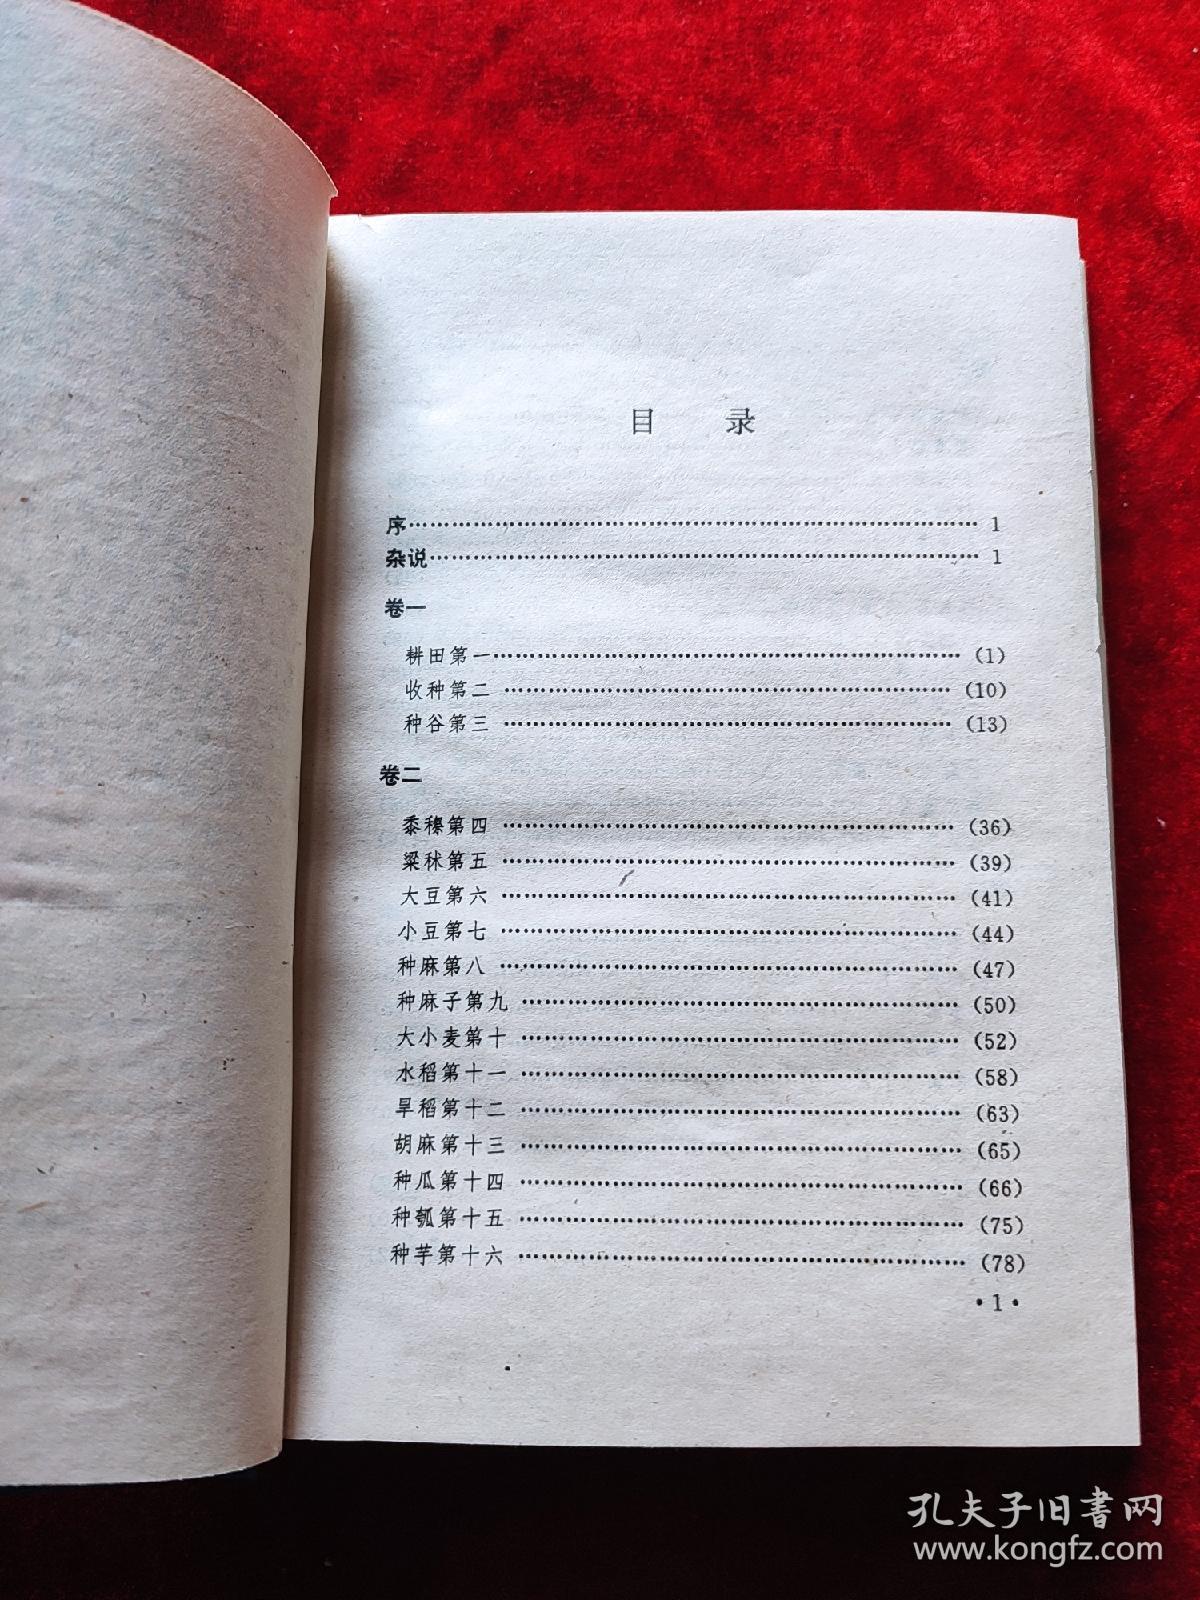 目 录
序 1
杂说 1
卷一
耕田第一 (1)
收种第二 (10)
种谷第三 (13)
卷二
黍穄第四 (36)
粱秫第五 (39)
大豆第六 (41)
小豆第七 (44)
种麻第八 (47)
种麻子第九 (50)
大小麦第十 (52)
水稻第十一 (58)
旱稻第十二 (63)
胡麻第十三 (65)
种瓜第十四 (66)
种瓠第十五 (75)
种芋第十六 (78)
·1·
孔夫子旧書网
www.kongfz.com